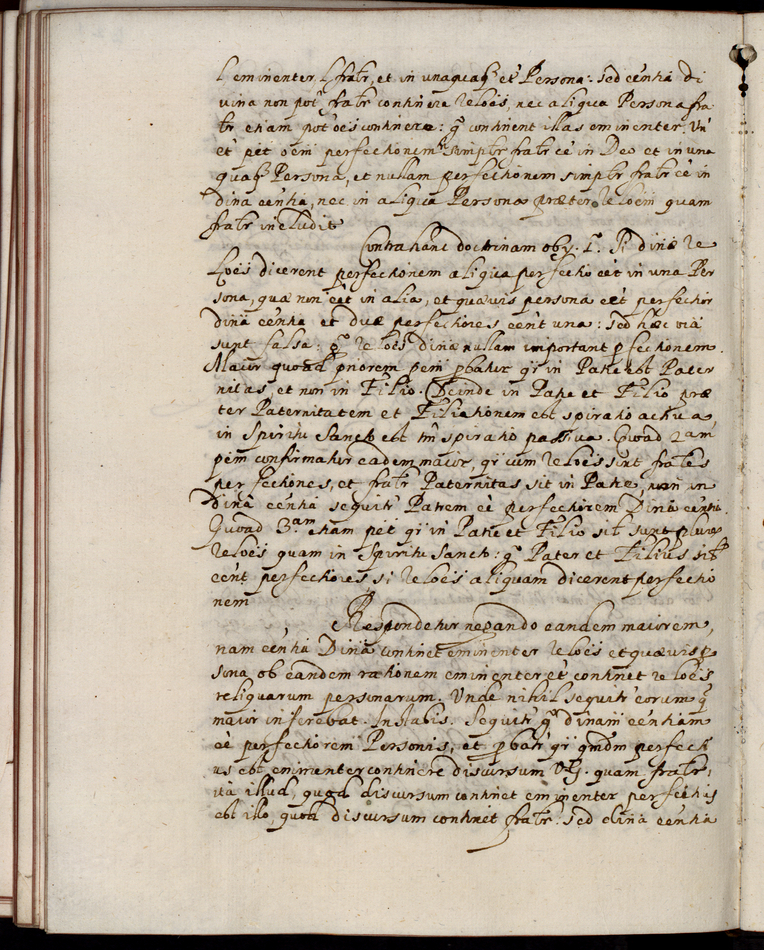 l eminenter l fratr, et in unaquaq3 et Persona: sed eentia di
vina non pot fratr continere reloes, nec aliqua Persona fra
tr etiam pot oes continere: q continent illas eminenter. Un
et pet oem perfectionem simplr fratr ee in Deo et in una
quaq3 Persona, et nullam perfectionem simplr fratr ee in
dina eentia, nec in aliqua Persona præter reloem quam
fratr includit
Contra hanc doctrinam obij. 1.º Si dinæ re
loes dicerent perfectionem aliqua perfectio eet in una Per
sona, quæ non eet in alia, et quævis persona eet perfectior
dina eentia et duæ perfectiores eent una: sed hæc oia
sunt falsa: g reloes dinæ nullam important perfectionem.
Maior quoad priorem pem probatur qr in Patre est Pater
nitas, et non in Filio. Deinde in Patre et Filio præ
ter Paternitatem et Filiationem est spiratio activa,
in Spiritu Sancto est tm spiratio passiva. Quoad 2am
pem confirmatur eadem maior, qr cum reloes sint fratres
perfectiones, et fratr Paternitas sit in Patre, non in
dina eentia sequitr Patrem ee perfectiorem Dina eentia.
Quoad 3.am etiam pet qr in Patre et Filio sil sunt plures
reloes quam in Spiritu Sancto: g Pater et Filius sil
eent perfectiores si reloes aliquam dicerent perfectio
nem
Respondetur negando eandem maiorem,
nam eentia Dina continet eminenter reloes et quævis per
sona ob eandem rationem eminenter et continet reloes
reliquarum personarum. Unde nihil sequitr eorum q
maior inferebat. Instabis. Sequitr g dinam eentiam
ee perfectiorem Personis, et probatr qr qmdm perfecti
us est eminenter continere discursum V.G. quam fratr,
ita illud, quod discursum continet eminenter perfectius
est illo, quod discursum continet fratr: sed dina eentia